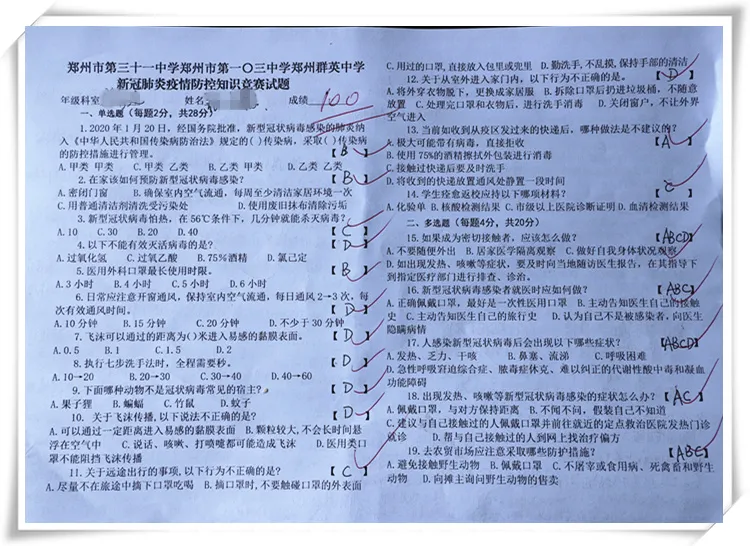 郑州市第三十一中学郑州市第一〇三中学郑州群英中学
新冠肺炎疫情防控知识竞赛试题
年级科室 姓名 成绩 100
一、单选题(每题2分,共28分)
1.2020年1月20日,经国务院批准,新型冠状病毒感染的肺炎纳
入《中华人民共和国传染病防治法》规定的( )传染病,采取( )传染病
的防控措施进行管理。 【 B 】
A.甲类 甲类 B.甲类 乙类 C.乙类 甲类 D.乙类 乙类
2.在家该如何预防新型冠状病毒感染? 【 B 】
A.密闭门窗 B.确保室内空气流通,每周至少清洁家居环境一次
C.用普通清洁剂清洗受污染处 D.使用废旧抹布清除污垢
3.新型冠状病毒怕热,在56℃条件下,几分钟就能杀灭病毒?
A.10 C.30 B.20 D.40 【 C 】
4.以下不能有效灭活病毒的是? 【 D 】
A.过氧化氢 C.过氧乙酸 B.75%酒精 D.氯己定
5.医用外科口罩最长使用时限。 【 B 】
A.3小时 B.4小时 C.5小时 D.6小时
6.日常应注意开窗通风,保持室内空气流通,每日通风2→3次,每
次有效通风时间。 【 D 】
A.10分钟 B.15分钟 C.20分钟 D.不少于30分钟
7.飞沫可以通过的距离为()米进入易感的黏膜表面。
A.0.5 B.1 C.1.5 D.2 【 D 】
8.执行七步洗手法时,全程需要秒。 【 D 】
A.10→20 B.20→30 C.30→40 D.40→60
9.下面哪种动物不是冠状病毒常见的宿主? 【 D 】
A.果子狸 B.蝙蝠 C.竹鼠 D.蚊子
10. 关于飞沫传播,以下说法不正确的是? 【 D 】
A.可以通过一定距离进入易感的黏膜表面 B.颗粒较大,不会长时间悬
浮在空气中 C.说话、咳嗽、打喷嚏都可能造成飞沫 D.医用类口
罩不能阻挡飞沫传播
11.关于远途出行的事项,以下行为不正确的是? 【 C 】
A.尽量不在旅途中摘下口罩吃喝 B.摘口罩时,不要触碰口罩的外表面
C.用过的口罩,直接放入包里或兜里 D.勤洗手,不乱摸,保持手部的清洁
12.关于从室外进入家门内,以下行为不正确的是? 【 D 】
A.将外穿衣物脱下,更换成家居服 B.拆除口罩后扔进垃圾桶,不随意
放置 C.处理完口罩和衣物后,进行洗手消毒 D.关闭窗户,不让外界
空气进入
13.当前如收到从疫区发过来的快递后,哪种做法是不建议的?
A.极大可能带有病毒,直接拒收 【 A 】
B.使用75%的酒精擦拭外包装进行消毒
C.接触过快递后要及时洗手
D.将收到的快递放置通风处静置一段时间
14.学生痊愈返校应持以下哪项材料? 【 C 】
A.化验单 B.核酸检测结果 C.市级以上医院诊断证明 D.血清检测结果
二、多选题(每题4分,共20分)
15.如果成为密切接触者,应该怎么做? 【 ABCD 】
A.不要随便外出 B.居家医学隔离观察 C.做好自我身体状况观察
D.如出现发热、咳嗽等症状,要及时向当地随访医生报告,在其指导下
到指定医疗部门进行排查、诊治。
16.新型冠状病毒感染者就医时应如何做? 【 ABC 】
A.正确佩戴口罩,最好是一次性医用口罩 B.主动告知医生自己的接触
史 C.主动告知医生自己的旅行史 D.认为自己不是被感染者,向医生
隐瞒病情
17.人感染新型冠状病毒后会出现以下哪些症状? 【ABCD】
A.发热、乏力、干咳 B.鼻塞、流涕 C.呼吸困难
D.急性呼吸窘迫综合症、脓毒症休克、难以纠正的代谢性酸中毒和凝血
功能障碍
18.出现发热、咳嗽等新型冠状病毒感染的症状怎么办? 【 AC 】
A.佩戴口罩,与对方保持距离 B.不闻不问,假装自己不知道
C.建议与自己接触过的人佩戴口罩并前往就近的定点救治医院发热门诊
就诊 D.帮与自己接触过的人到网上找治疗偏方
19.去农贸市场应注意采取哪些防护措施? 【 ABC 】
A.避免接触野生动物 B.佩戴口罩 C.不屠宰或食用病、死禽畜和野生
动物 D.向摊主询问野生动物的售卖